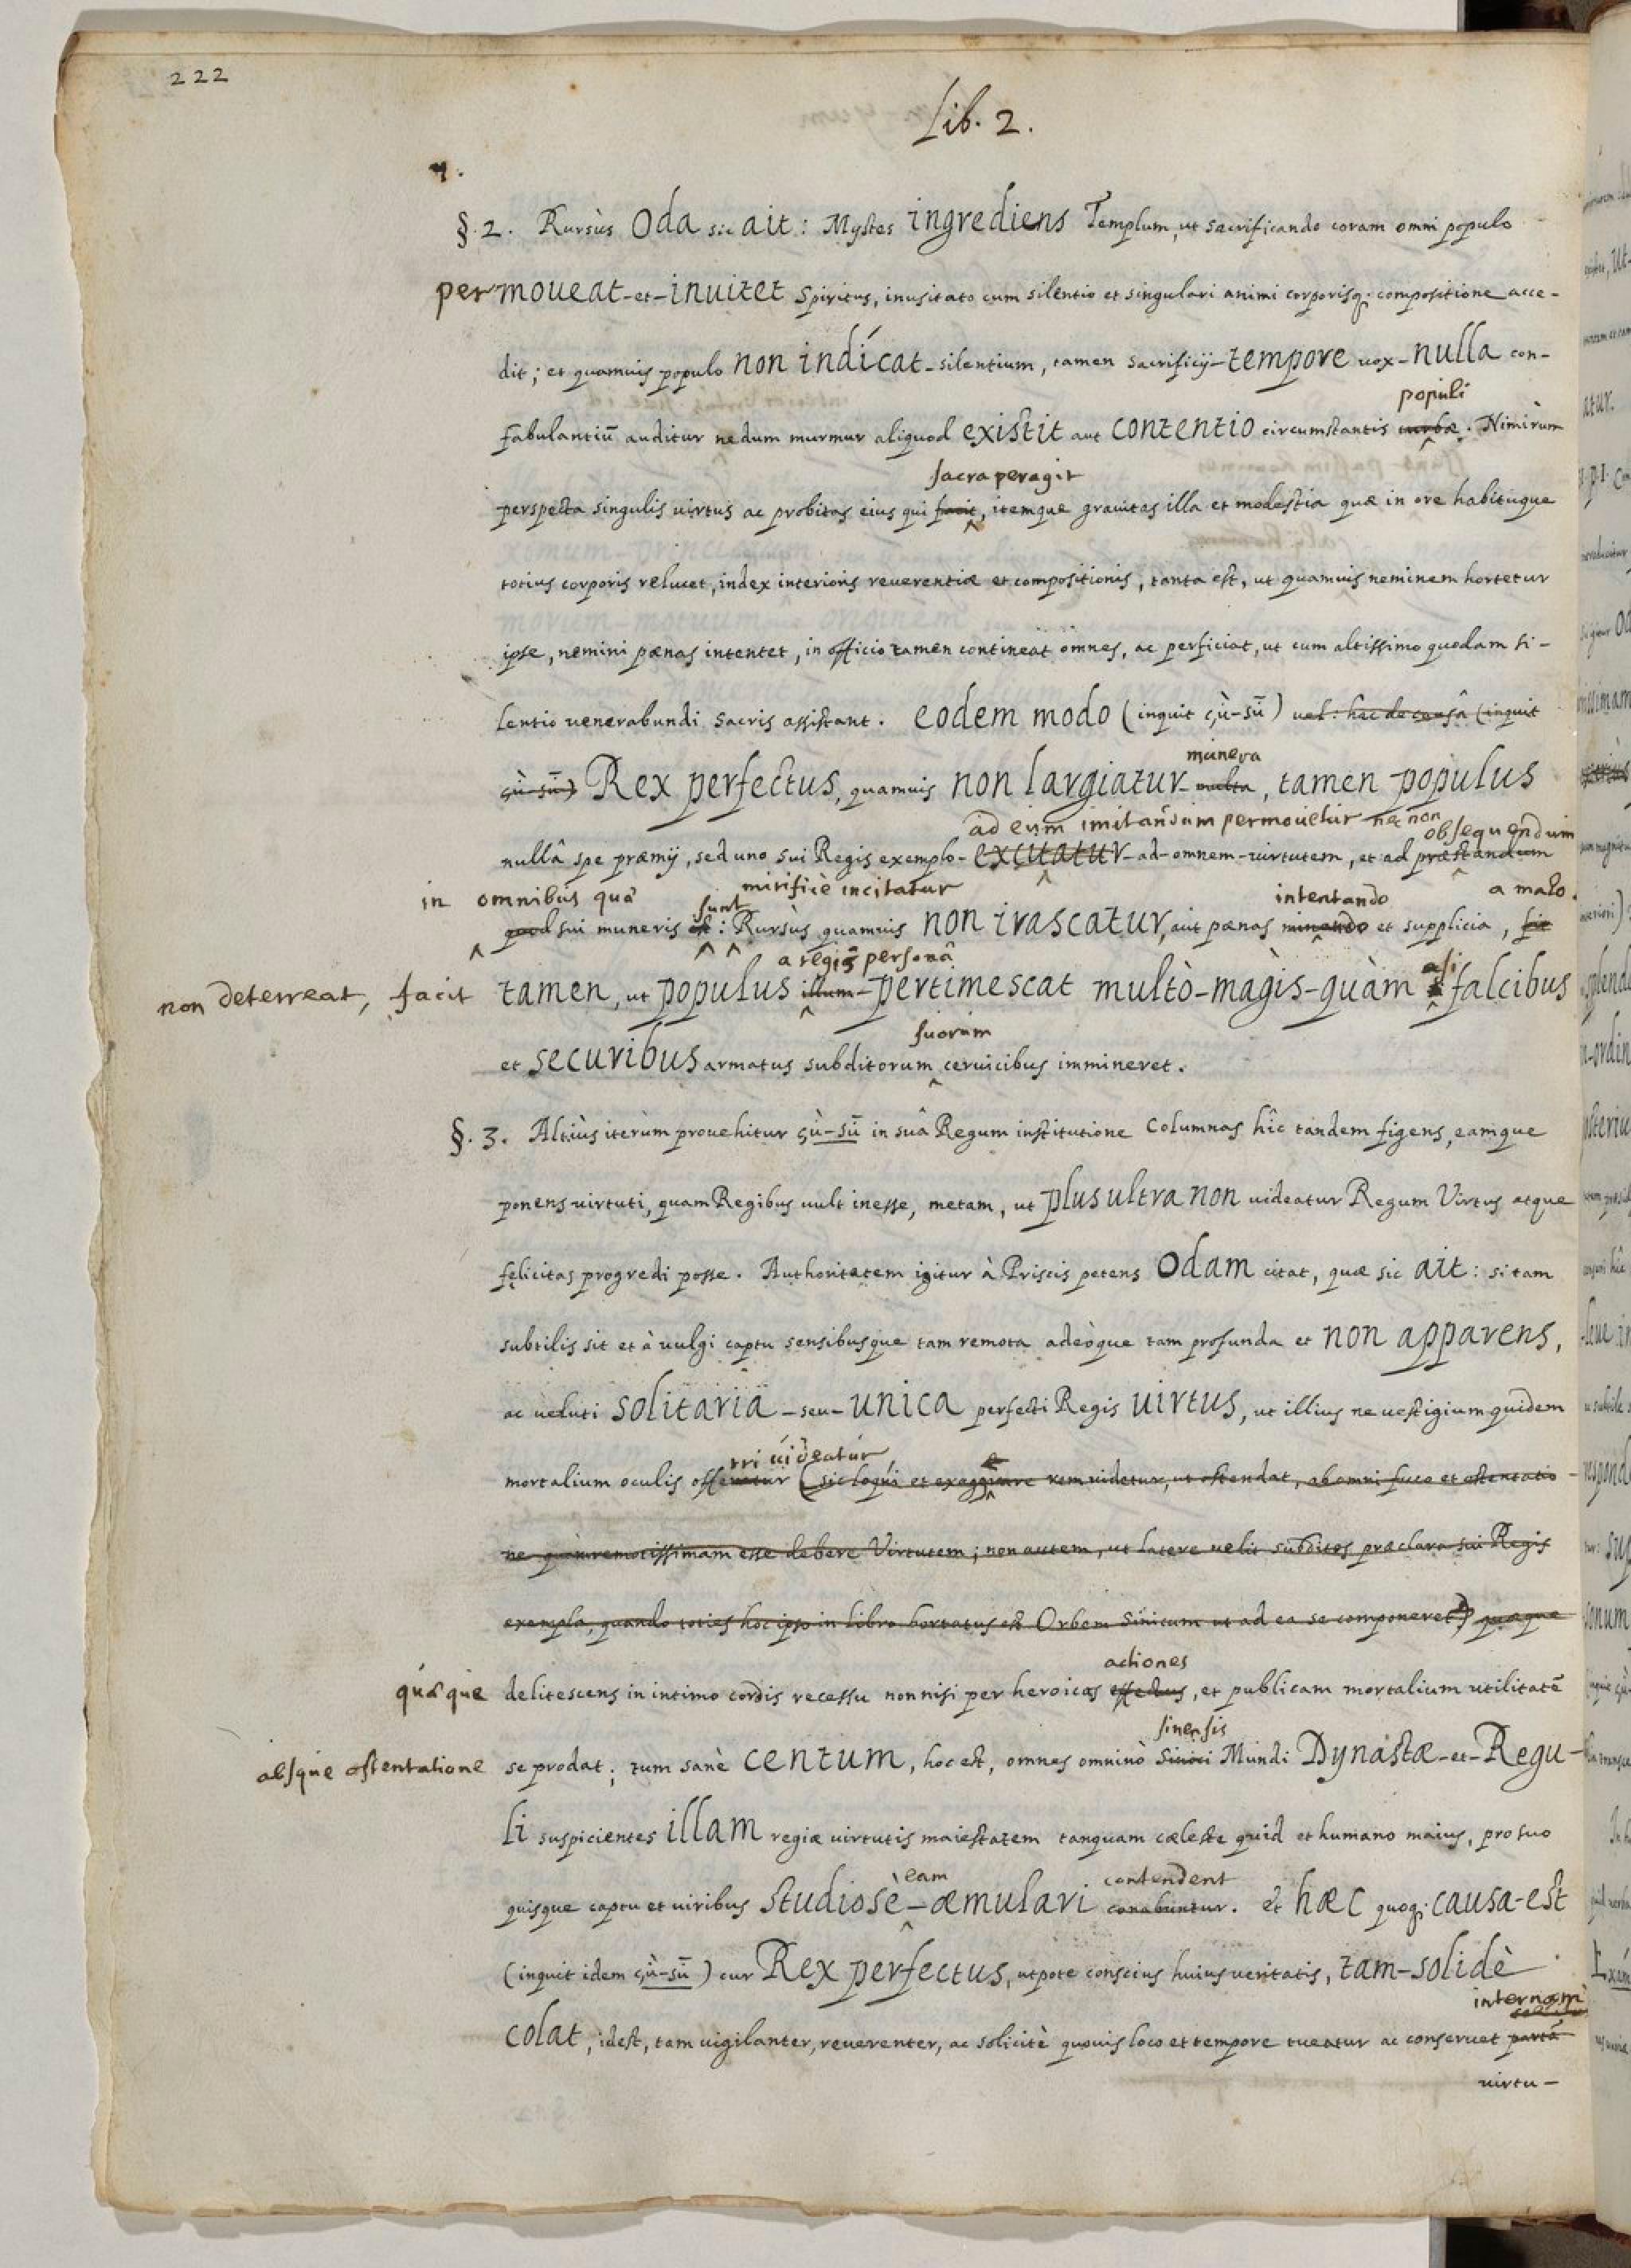 222
Lib. 2.
4.
§. 2. Rursùs Oda sic ait: Mystes ingrediens Templum, ut sacrificando coram omni populo
permoueat-et-inuitet Spiritus, inusitato cum silentio et singulari animi corporisq; compositione acce-
dit; et quamuis populo non indícat-silentium, tamen sacrificij-tempore uox-nulla con-
populi
fabulantiū auditur nedum murmur aliquod existit aut contentio circumstantis turbæ. Nimirùm
sacra peragit
perspecta singulis uirtus ac probitas eius qui facit, itemque grauitas illa et modestia quæ in ore habituque
totius corporis relucet, index interioris reuerentiæ et compositionis, tanta est, ut quamuis neminem hortetur
ipse, nemini pœnas intentet, in officio tamen contineat omnes, ac perficiat, ut cum altissimo quodam si-
lentio uenerabundi sacris assistant. eodem modo (inquit çù-sū) uel: hac de causâ (inquit
munera
çù-sū) Rex perfectus, quamuis non largiatur-multa, tamen populus
ad eum imitandum permouetur nec non obsequendum
nullâ spe præmij, sed uno sui Regis exemplo-excitatur-ad-omnem-uirtutem, et ad præstandum
in omnibus quæ sunt mirificè incitatur intentando a malo.
quod sui muneris est: Rursùs quamuis non irascatur, aut pœnas minando et supplicia, sic
a regiâ personâ
non deterreat, facit tamen, ut populus illum-pertimescat multò-magìs-quàm si falcibus
suorum
et securibus armatus subditorum ceruicibus immineret.
§. 3. Altiùs iterùm prouehitur çù-sū in suâ Regum institutione columnas hîc tandem figens, eamque
ponens uirtuti, quam Regibus uult inesse, metam, ut plus ultra non uideatur Regum Virtus atque
felicitas progredi posse. Authoritatem igitur à Priscis petens Odam citat, quæ sic ait: si tam
subtilis sit et à uulgi captu sensibusque tam remota adeòque tam profunda et non apparens,
ac ueluti solitaria-seu-unica perfecti Regis uirtus, ut illius ne uestigium quidem
rri uideatur,
mortalium oculis offeratur (sic loqui et exaggerare rem uidetur, ut ostendat, ab omni fuco et ostentatio-
ne quàm remotissimam esse debere Virtutem; non autem, ut latere uelit subditos præclara sui Regis
exempla, quando toties hoc ipso in libro hortatus est Orbem Sinicum ut ad ea se componeret) quæque
actiones
quæque delitescens in intimo cordis recessu nonnisi per heroicas effectus, et publicam mortalium utilitatē
sinensis
absque ostentatione se prodat; tum sanè centum, hoc est, omnes omninò Sinici Mundi Dynastæ-et-Regu-
li suspicientes illam regiæ uirtutis maiestatem tanquam cæleste quid et humano maius, pro suo
eam contendent
quisque captu et uiribus studiosè-æmulari conabuntur. et hæc quoq; causa-est
(inquit idem çù-sū) cur Rex perfectus, utpote conscius huius ueritatis, tam-solidè
internam
colat, idest, tam uigilanter, reuerenter, ac solicitè quouis loco et tempore tueatur ac conseruet partā
uirtu-